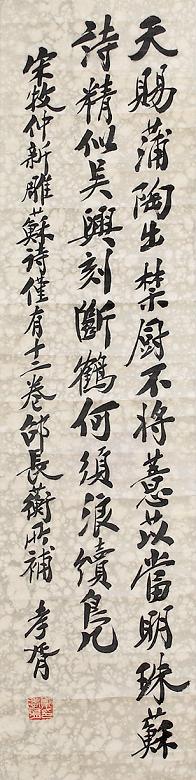 天賜蒲陶出禁厨不將薏苡當明珠蘇
詩精似吳興刻斷鶴何須浪續鳧
宋牧仲新雕蘇詩僅有十二卷邰長蘅所補 孝胥